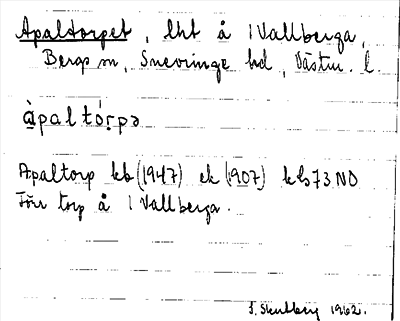 Apaltorpet, lht å 1 Vallberga,
Bergs sn, Snevringe hd, Västm. l.
àpaltórpə
Apaltorp kb (1947) ek (1907) kbl 73 NO
Förr torp å 1 Vallberga.
S. Skulberg 1962.